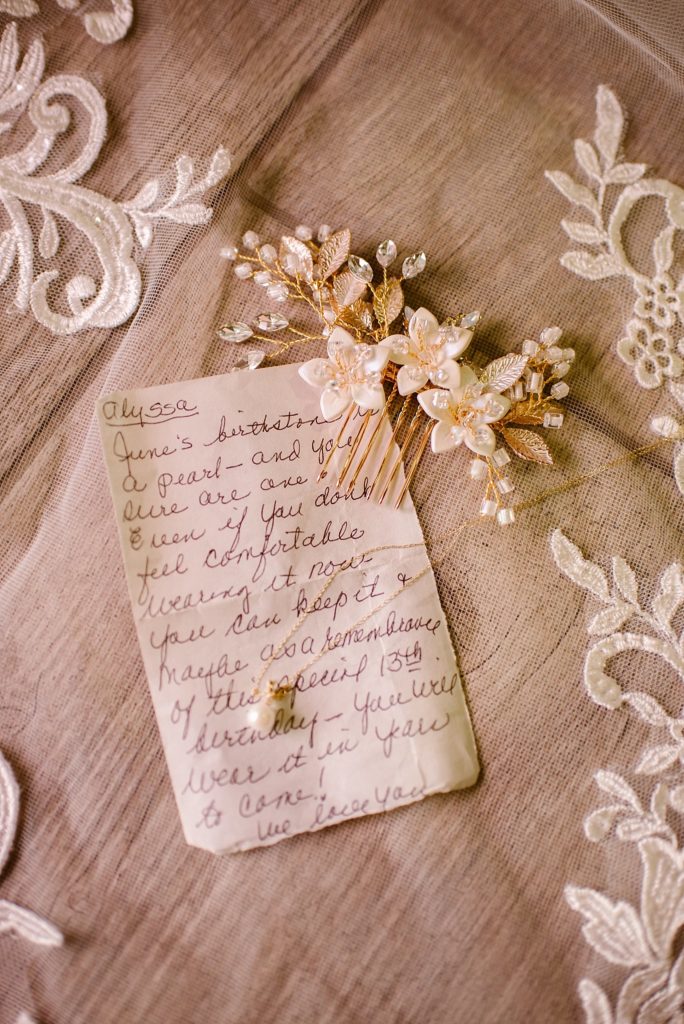 Alyssa
June's birthstone is
a pearl - and you
sure are one!
Even if you don't
feel comfortable
wearing it now
you can keep it &
maybe as a remembrance
of this special 13th
birthday - you will
wear it in years
to come!
We love you